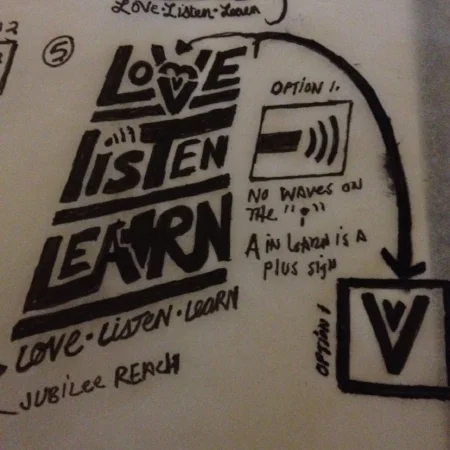 Love·Listen·Learn
5
LOVE
LISTEN
LEARN
LOVE·LISTEN·LEARN
JUBILEE REACH
OPTION 1.
NO WAVES ON
THE "i"
A IN LEARN IS A
PLUS SIGN
OPTION 1
V